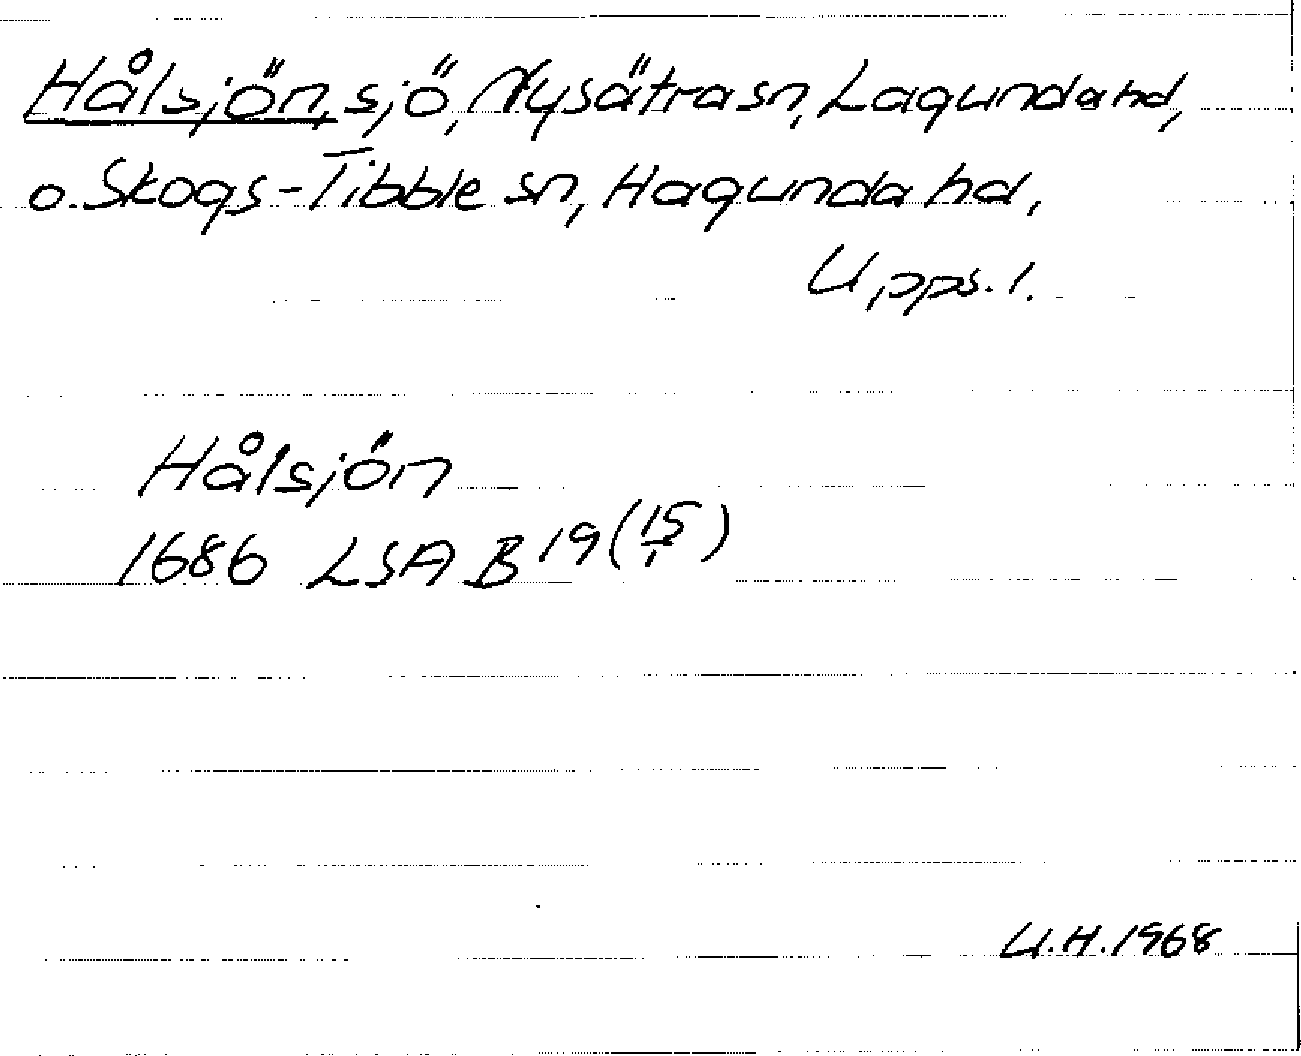 Hålsjön, sjö, Nysätra sn, Lagunda hd,
o. Skogs-Tibble sn, Hagunda hd,
Upps. l.
Hålsjön
1686 LSA B 19 (15/1)
U.H. 1968